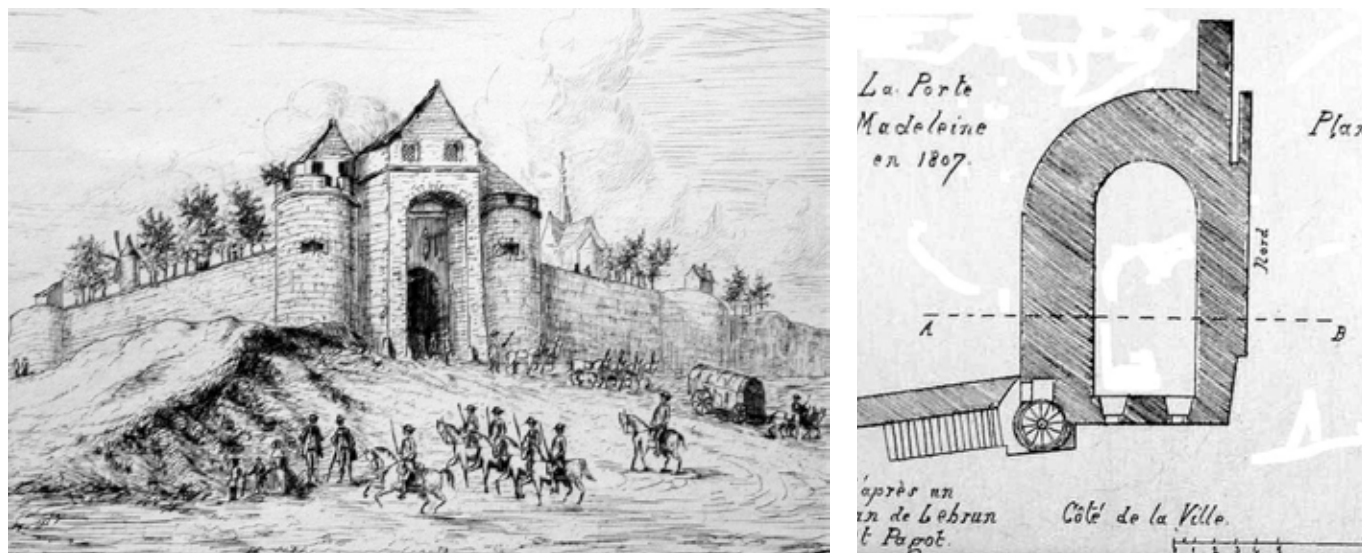 La Porte
Madeleine
en 1807.
Plan
Nord
A
B
'après un
an de Lebrun
t Pagot.
Côté de la Ville.